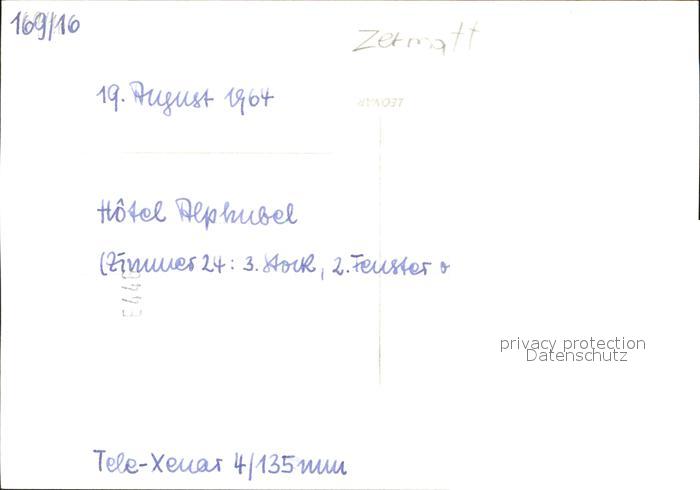 169/16
Zermatt
19. August 1964
LEONAR
Hôtel Alphubel
(Zimmer 24: 3. Stock, 2. Fenster
privacy protection
Datenschutz
Tele-Xenar 4/135mm